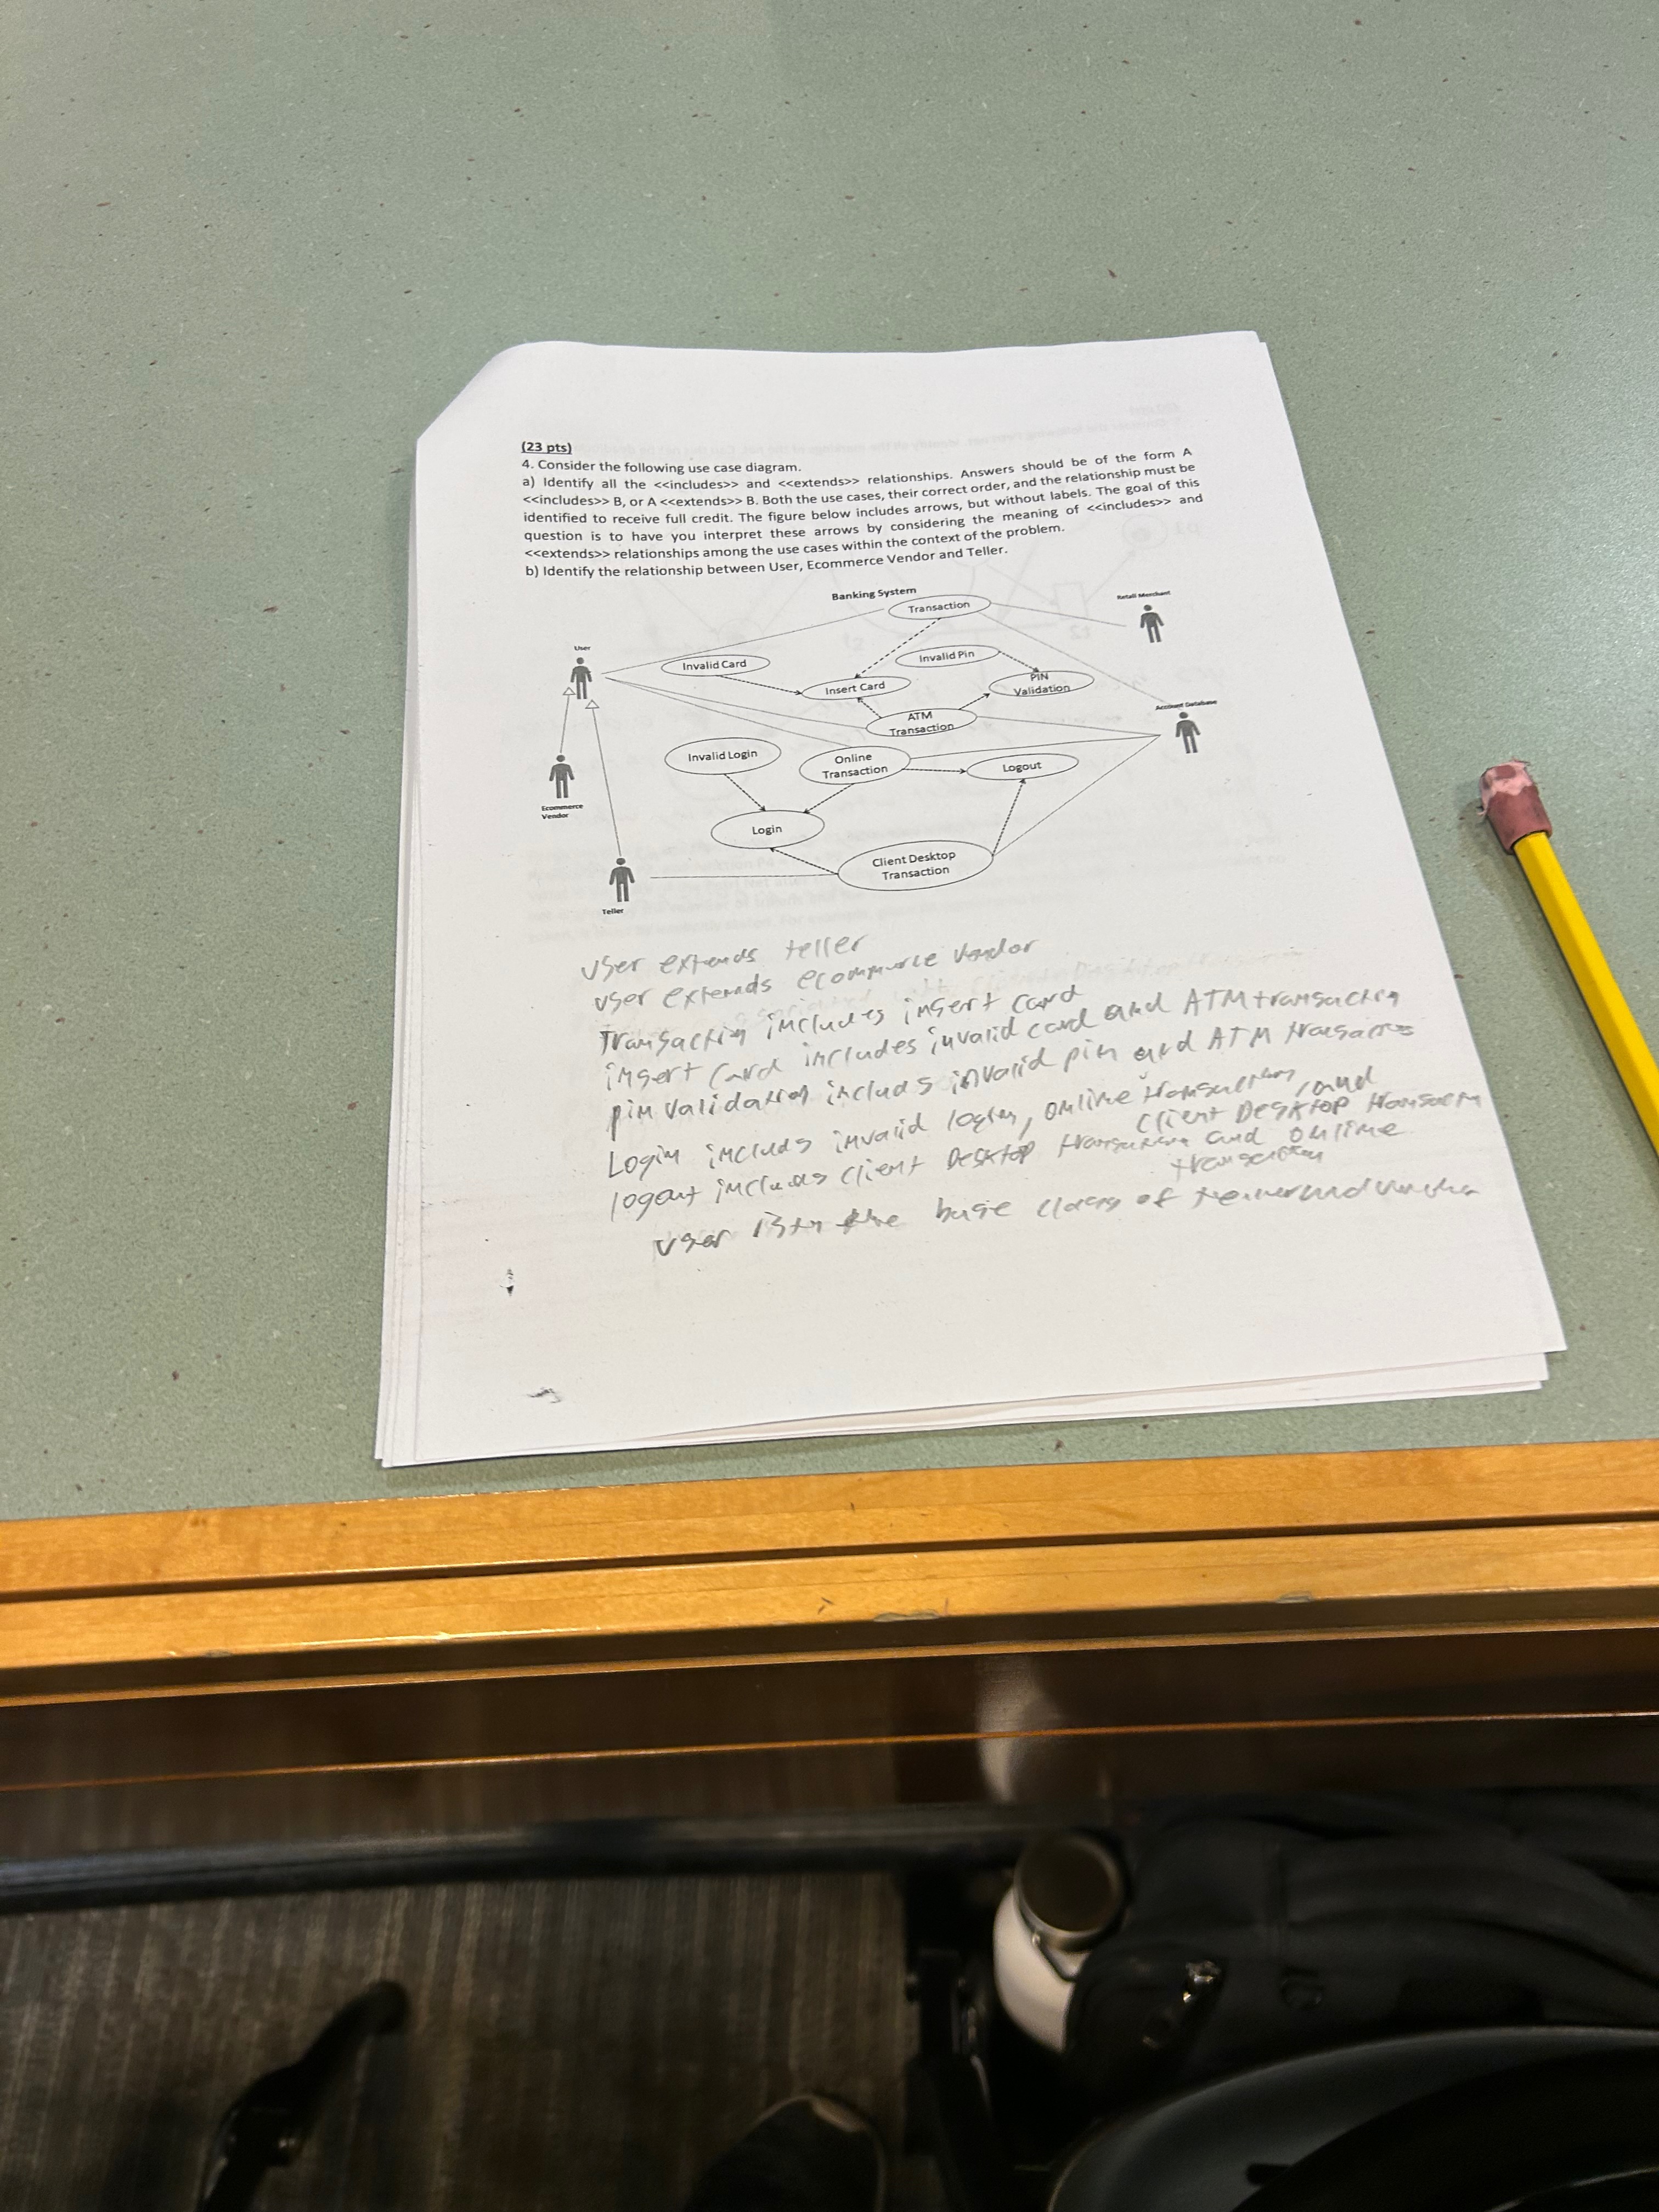 (23 pts)
4. Consider the following use case diagram.
a) Identify all the <<includes>> and <<extends>> relationships. Answers should be of the form A
<<includes>> B, or A <<extends>> B. Both the use cases, their correct order, and the relationship must be
identified to receive full credit. The figure below includes arrows, but without labels. The goal of this
question is to have you interpret these arrows by considering the meaning of <<includes>> and
<<extends>> relationships among the use cases within the context of the problem.
b) Identify the relationship between User, Ecommerce Vendor and Teller.
Banking System
Transaction
Retail Merchant
User
Invalid Card
Invalid Pin
Insert Card
PIN
Validation
Account Database
ATM
Transaction
Invalid Login
Online
Transaction
Logout
Ecommerce
Vendor
Login
Client Desktop
Transaction
Teller
User extends teller
User extends ecommerce vendor
Transaction includes insert card
insert Card includes invalid card and ATM transaction
pin validation includs invalid pin and ATM transaction
Login includs invalid login, online transaction, and
Client Desktop transaction
logout includes client Desktop transaction and online
transaction
User is the base class of